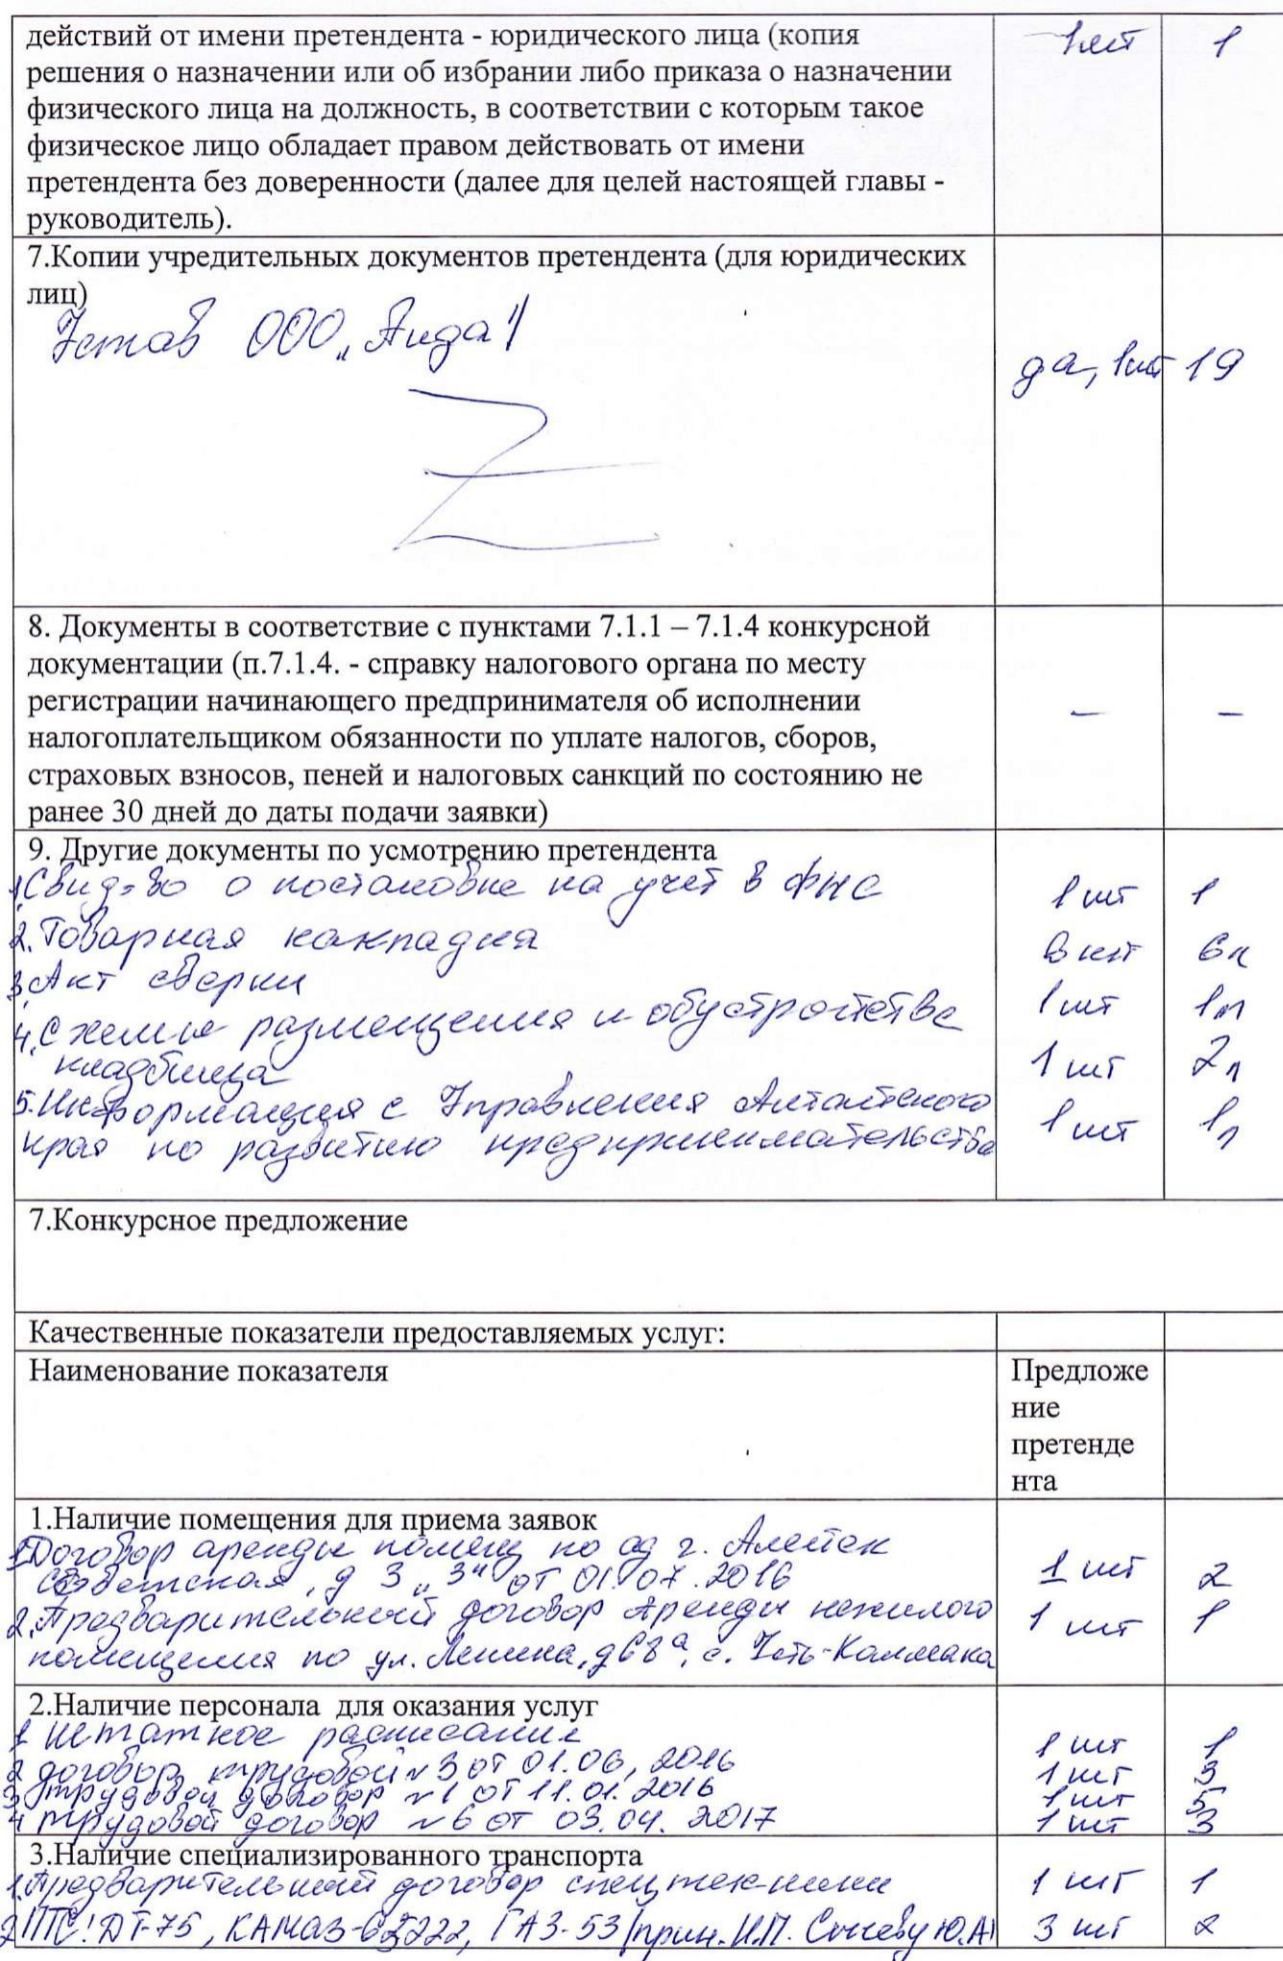 действий от имени претендента - юридического лица (копия 1 шт 1
решения о назначении или об избрании либо приказа о назначении
физического лица на должность, в соответствии с которым такое
физическое лицо обладает правом действовать от имени
претендента без доверенности (далее для целей настоящей главы -
руководитель).
7.Копии учредительных документов претендента (для юридических
лиц)
Устав ООО „Аида"
да, 1шт 19
8. Документы в соответствие с пунктами 7.1.1 – 7.1.4 конкурсной
документации (п.7.1.4. - справку налогового органа по месту
регистрации начинающего предпринимателя об исполнении
налогоплательщиком обязанности по уплате налогов, сборов, – –
страховых взносов, пеней и налоговых санкций по состоянию не
ранее 30 дней до даты подачи заявки)
9. Другие документы по усмотрению претендента
1. Свид-во о постановке на учет в ФНС 1 шт 1
2. Товарная накладная шт 6л
3. Акт сверки 1 шт 1л
4. Схемы размещения и обустройства
кладбища 1 шт 2л
5. Информация с Управления Алтайского 1 шт 1л
края по развитию предпринимательства
7.Конкурсное предложение
Качественные показатели предоставляемых услуг:
Наименование показателя Предложе
ние
претенде
нта
1.Наличие помещения для приема заявок
1. Договор аренды помещ по ад г. Алейск
Советская, д 3 „З" от 01.07.2016 1 шт 2
2. Предварительный договор Аренды нежилого 1 шт 1
помещения по ул. Ленина, д 68а, с. Усть-Калманка
2.Наличие персонала для оказания услуг
1 Штатное расписание 1 шт 1
2 договор трудовой № 3 от 01.06.2016 1 шт 3
3 трудовой договор № 1 от 11.01.2016 1 шт 5
4 трудовой договор № 6 от 03.04.2017 1 шт 3
3.Наличие специализированного транспорта
1. Предварительный договор спецтехники 1 шт 1
2 ПТС: ДТ-75, КАМАЗ- ГАЗ-53 (прин. И.П. Ю.А) 3 шт 2